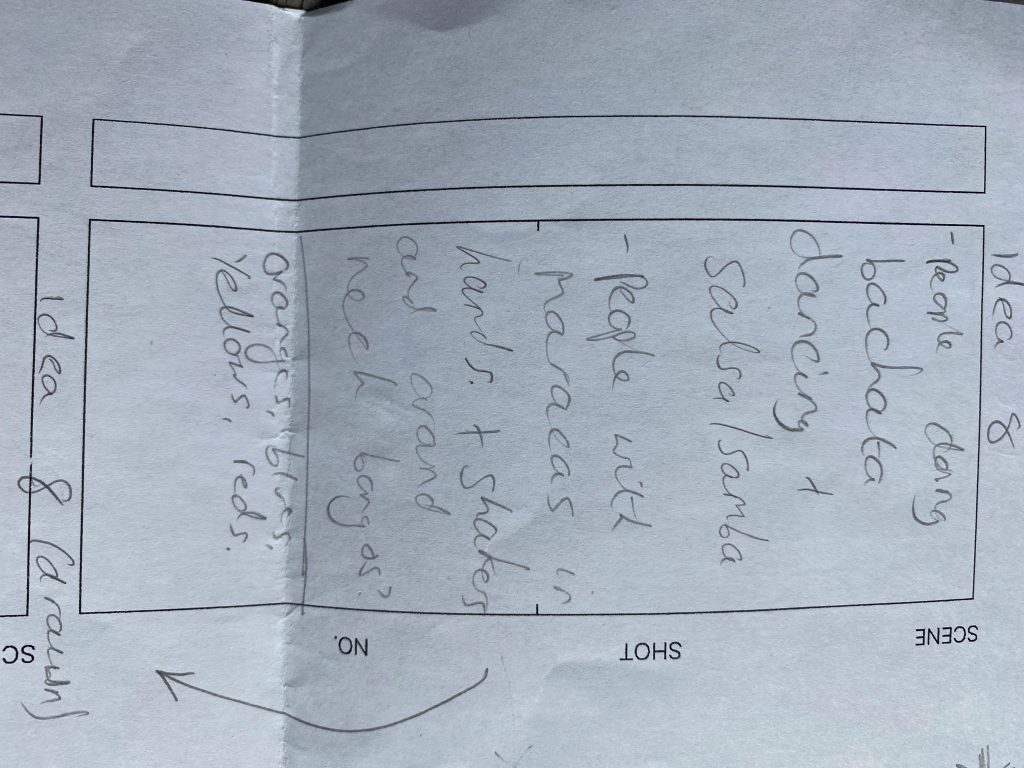 Idea 8
- People doing
bachata
dancing +
Salsa/Samba
- People with
maracas in
hands. + Shakers
and arand
neck bongos?
oranges, blues,
Yellows, reds.
Idea 8 (drawn)
SCENE
SHOT
NO.
SC